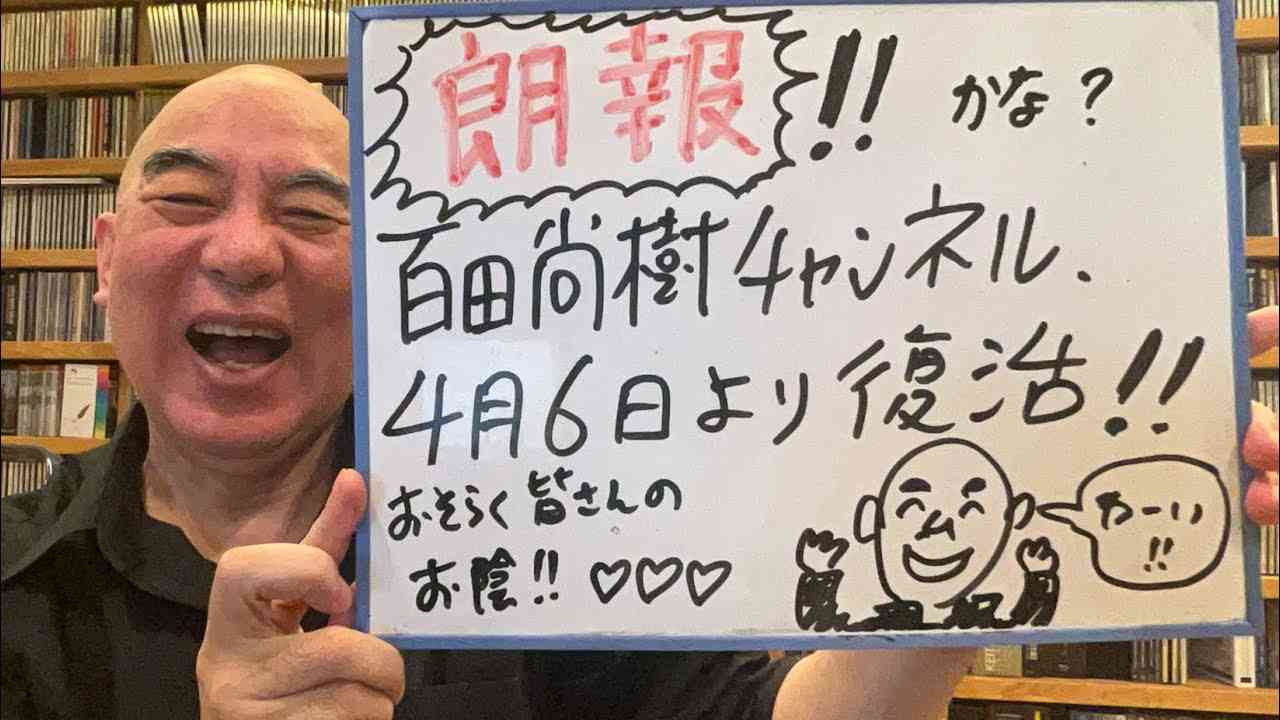 朗報!! かな?
百田尚樹チャンネル、
4月6日より復活!!
おそらく皆さんの
お陰!! ♡♡♡
わーい
!!